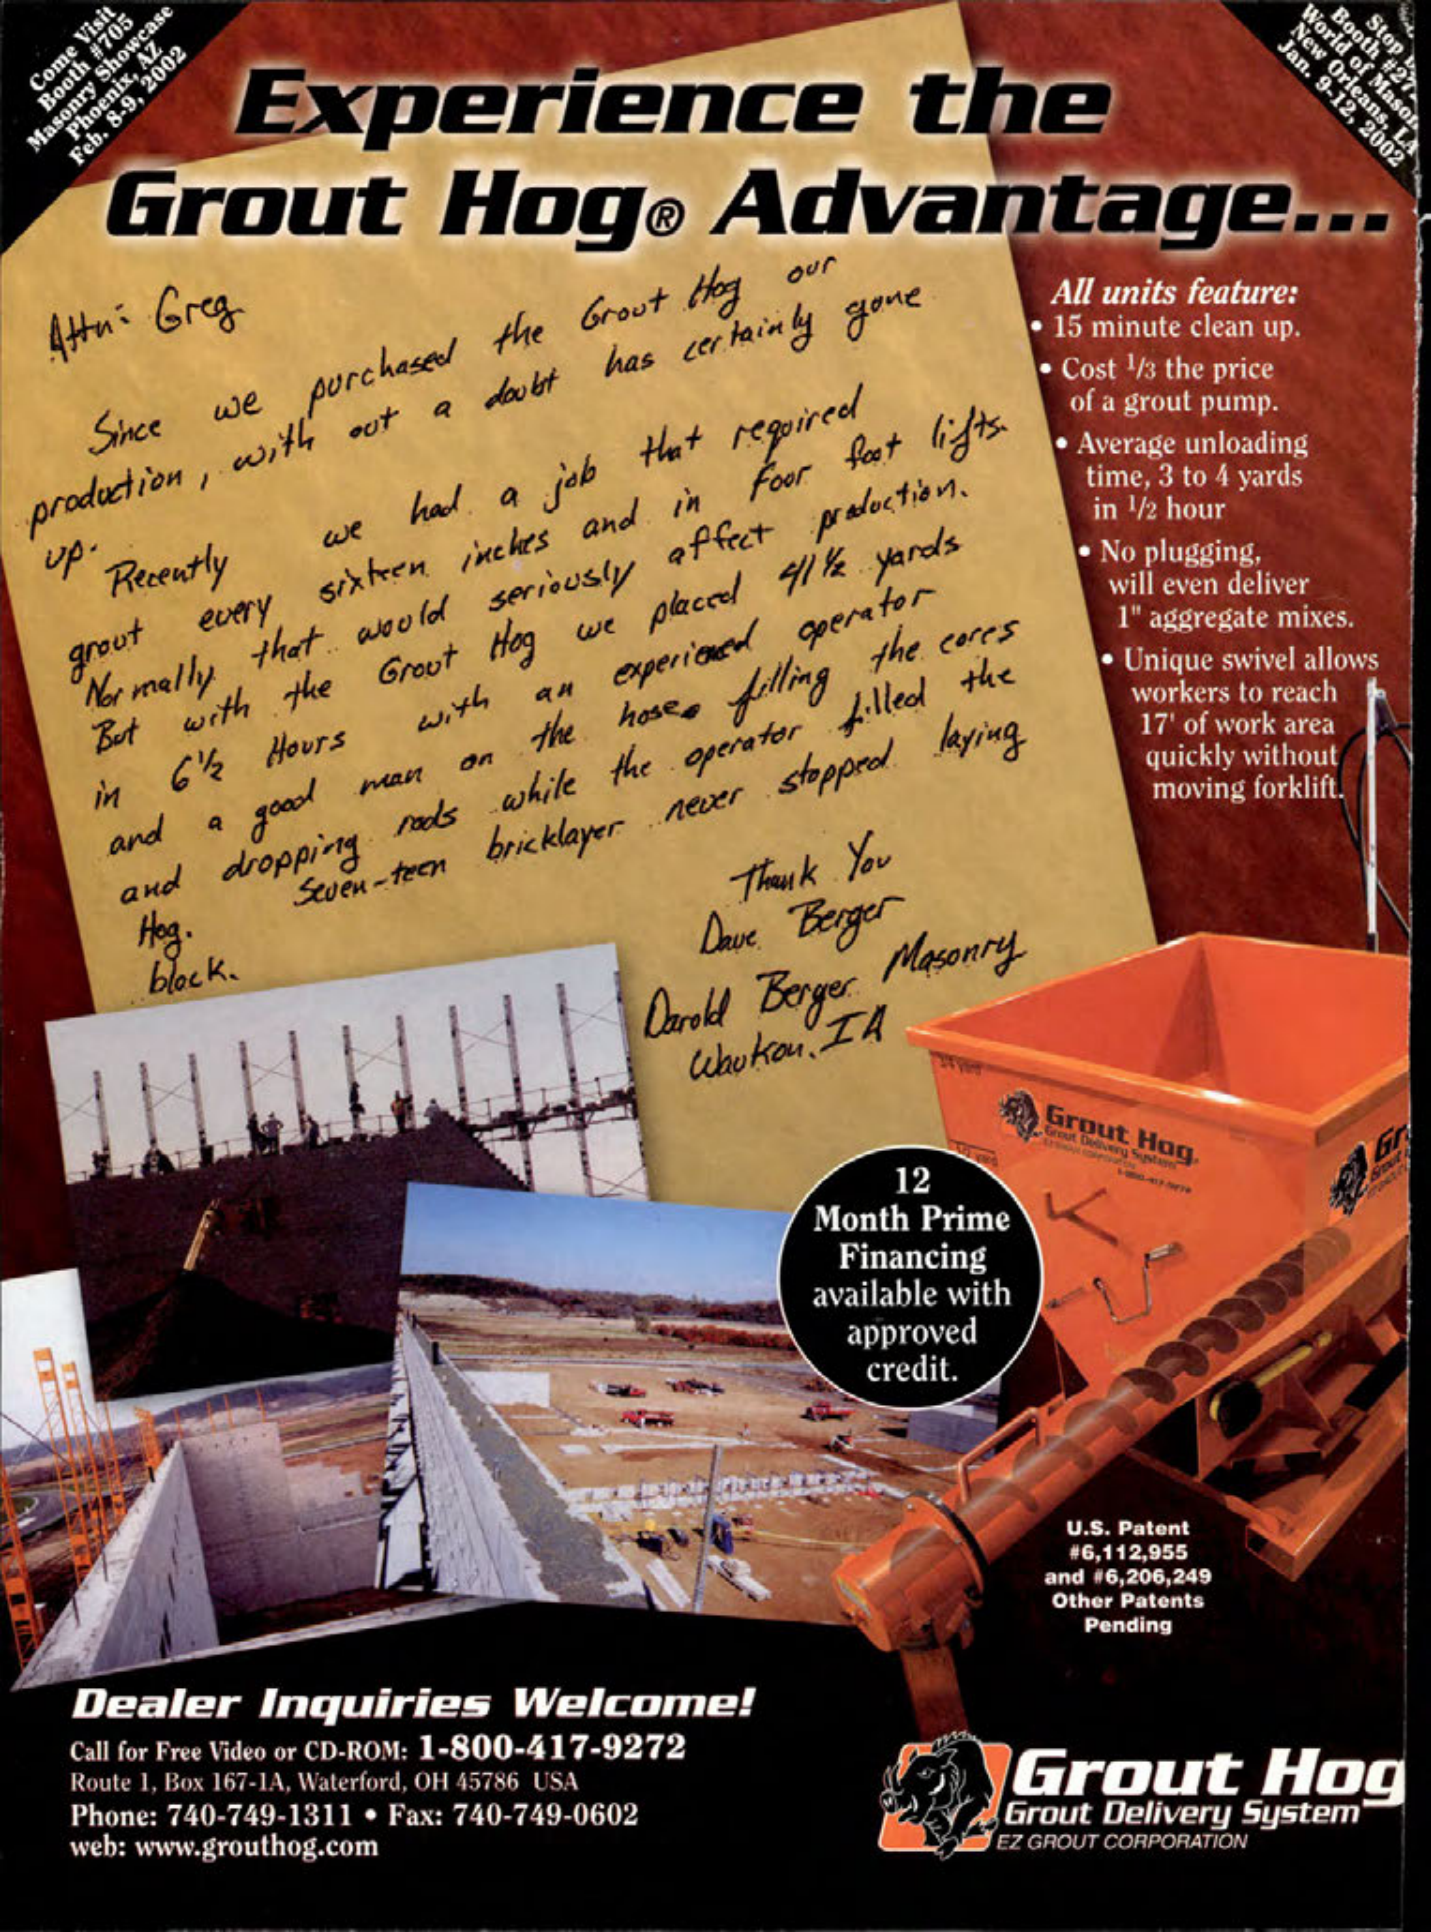 Come Visit
Booth #705
Masonry Showcase
Phoenix, AZ
Feb. 8-9, 2002
Stop
Booth #27
World of Mason
New Orleans, LA
Jan. 9-12, 2002
Experience the
Grout Hog® Advantage...
Attn: Greg
Since we purchased the Grout Hog our
production, with out a doubt has certainly gone
up.
Recently we had a job that required
grout every sixteen inches and in foor foot lifts.
Normally that would seriously affect production.
But with the Grout Hog we placed 41 1/2 yards
in 6 1/2 Hours with an experienced operator
and a good man on the hose filling the cores
and dropping rods while the operator filled the
Hog. Seven-teen bricklayer never stopped laying
block.
Thank You
Dave Berger
Darold Berger Masonry
Waukon, IA
All units feature:
• 15 minute clean up.
• Cost 1/3 the price
of a grout pump.
• Average unloading
time, 3 to 4 yards
in 1/2 hour
• No plugging,
will even deliver
1" aggregate mixes.
• Unique swivel allows
workers to reach
17' of work area
quickly without
moving forklift.
3/4 yard
1/2 yard
Grout Hog®
Grout Delivery System
EZ GROUT CORPORATION
1-800-417-9272
Gr
Grout
12
Month Prime
Financing
available with
approved
credit.
U.S. Patent
#6,112,955
and #6,206,249
Other Patents
Pending
Dealer Inquiries Welcome!
Call for Free Video or CD-ROM: 1-800-417-9272
Route 1, Box 167-1A, Waterford, OH 45786 USA
Phone: 740-749-1311 • Fax: 740-749-0602
web: www.grouthog.com
Grout Hog
Grout Delivery System
EZ GROUT CORPORATION